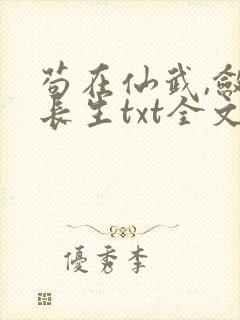 苟在仙武,敛
长生txt全文
優秀李